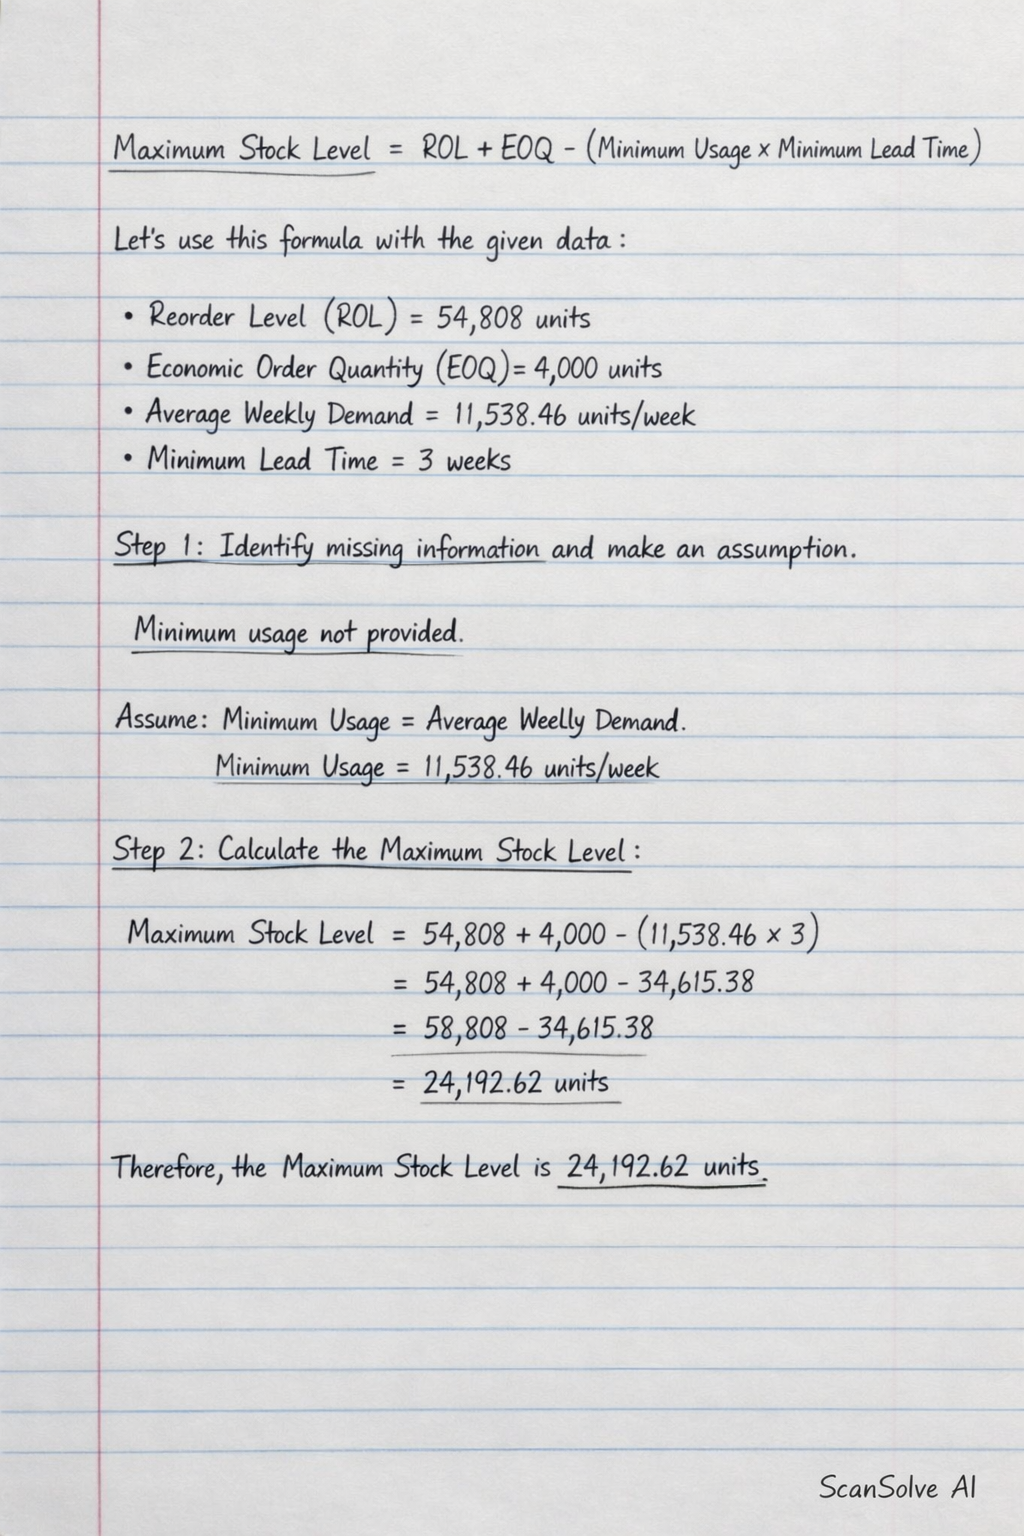 Maximum Stock Level = ROL + EOQ - (Minimum Usage × Minimum Lead Time)
Let's use this formula with the given data :
• Reorder Level (ROL) = 54,808 units
• Economic Order Quantity (EOQ) = 4,000 units
• Average Weekly Demand = 11,538.46 units/week
• Minimum Lead Time = 3 weeks
Step 1: Identify missing information and make an assumption.
Minimum usage not provided.
Assume: Minimum Usage = Average Weelly Demand.
Minimum Usage = 11,538.46 units/week
Step 2: Calculate the Maximum Stock Level :
Maximum Stock Level = 54,808 + 4,000 - (11,538.46 × 3)
= 54,808 + 4,000 - 34,615.38
= 58,808 - 34,615.38
= 24,192.62 units
Therefore, the Maximum Stock Level is 24,192.62 units.
ScanSolve AI